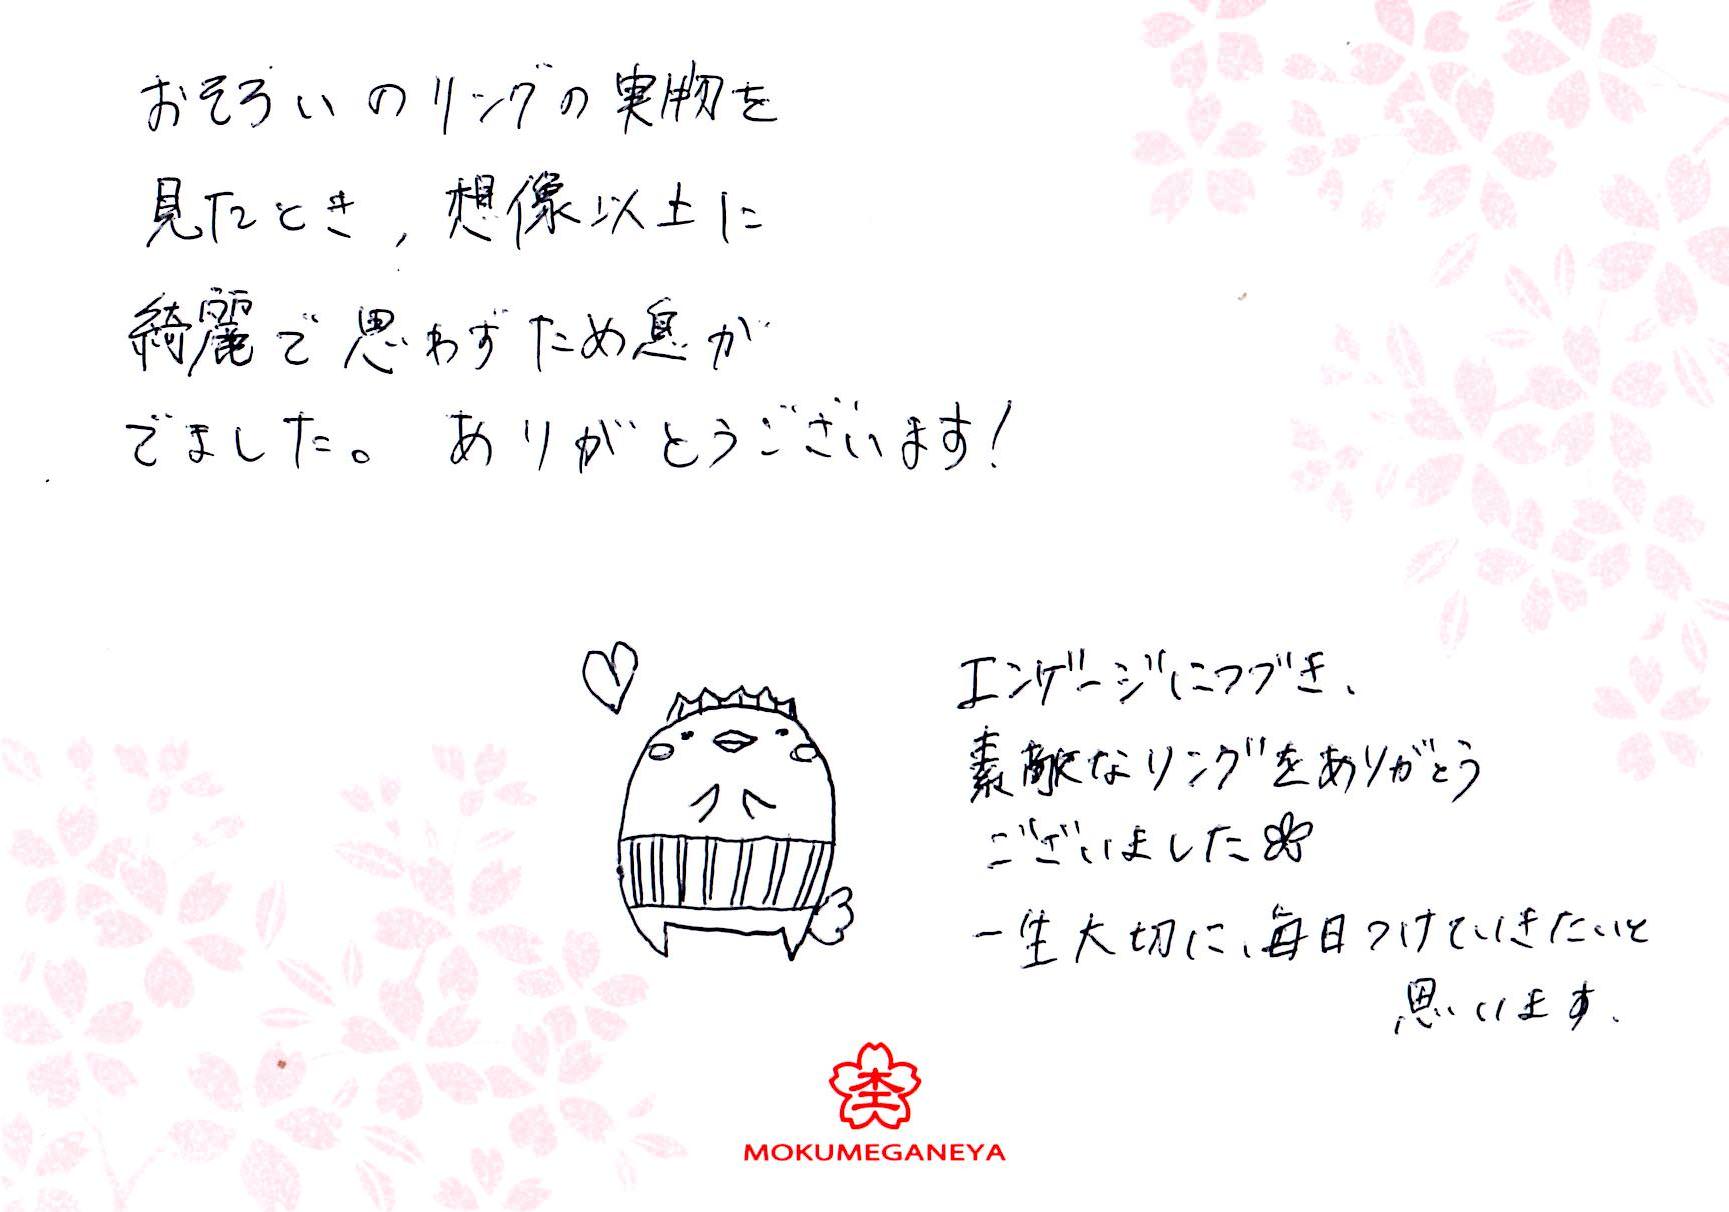 おそろいのリングの実物を
見たとき、想像以上に
綺麗で思わずため息が
でました。ありがとうございます！
エンゲージにつづき、
素敵なリングをありがとう
ございました
一生大切に、毎日つけていきたいと
思います。
杢
MOKUMEGANEYA